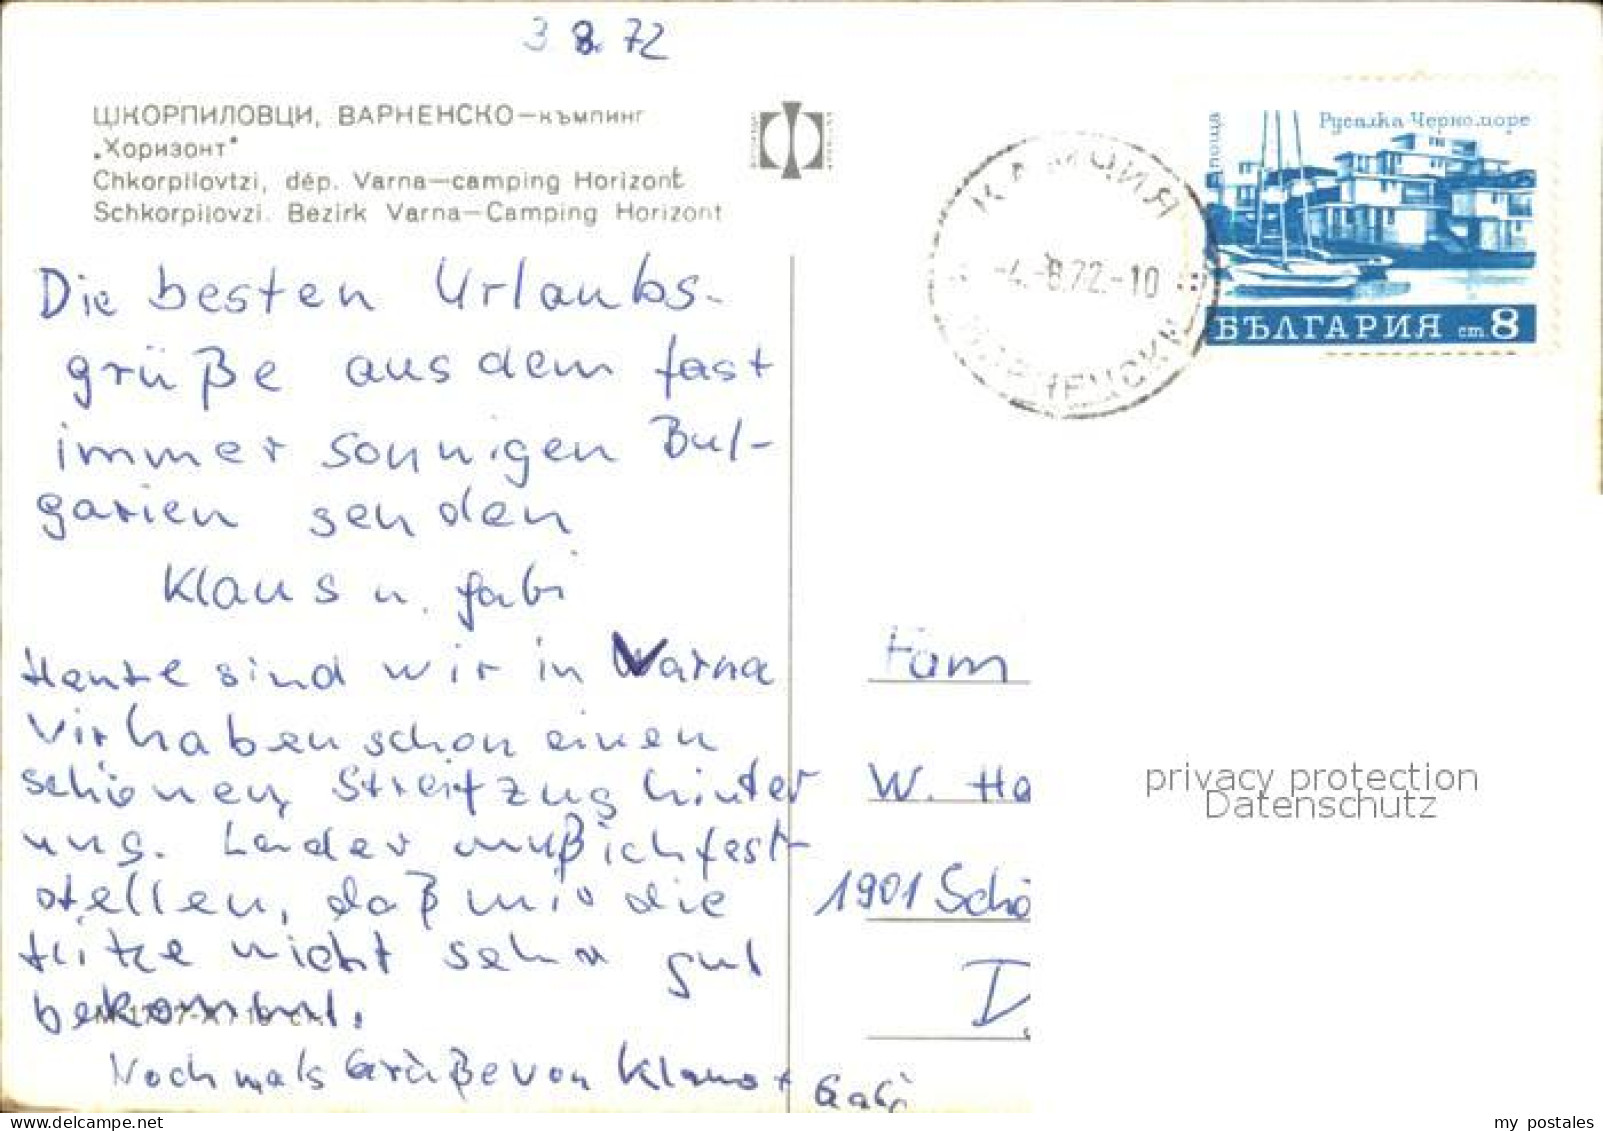 3 8. 72
ШКОРПИЛОВЦИ, ВАРНЕНСКО—къмпинг
„Хоризонт"
Chkorpilovtzi, dép. Varna—camping Horizont
Schkorpilovzi. Bezirk Varna—Camping Horizont
Die besten Urlaubs-
grüße aus dem fast
immer sonnigen Bul-
garien senden
Klaus u. Gabi
Heute sind wir in Varna
Wir haben schon einen
schönen Streifzug hinter
uns. Leider muß ich fest-
stellen, daß mir die
Hitze nicht sehr gut
bekommt.
Nochmals Grüße von Klaus + Gabi
КАМЧИЯ
-4.-8.72.-10
ВАРНЕНСКИ
поща
Русалка Черно море
БЪЛГАРИЯ ст. 8
Fam
W. Ha
1901 Schö
privacy protection
Datenschutz
my postales